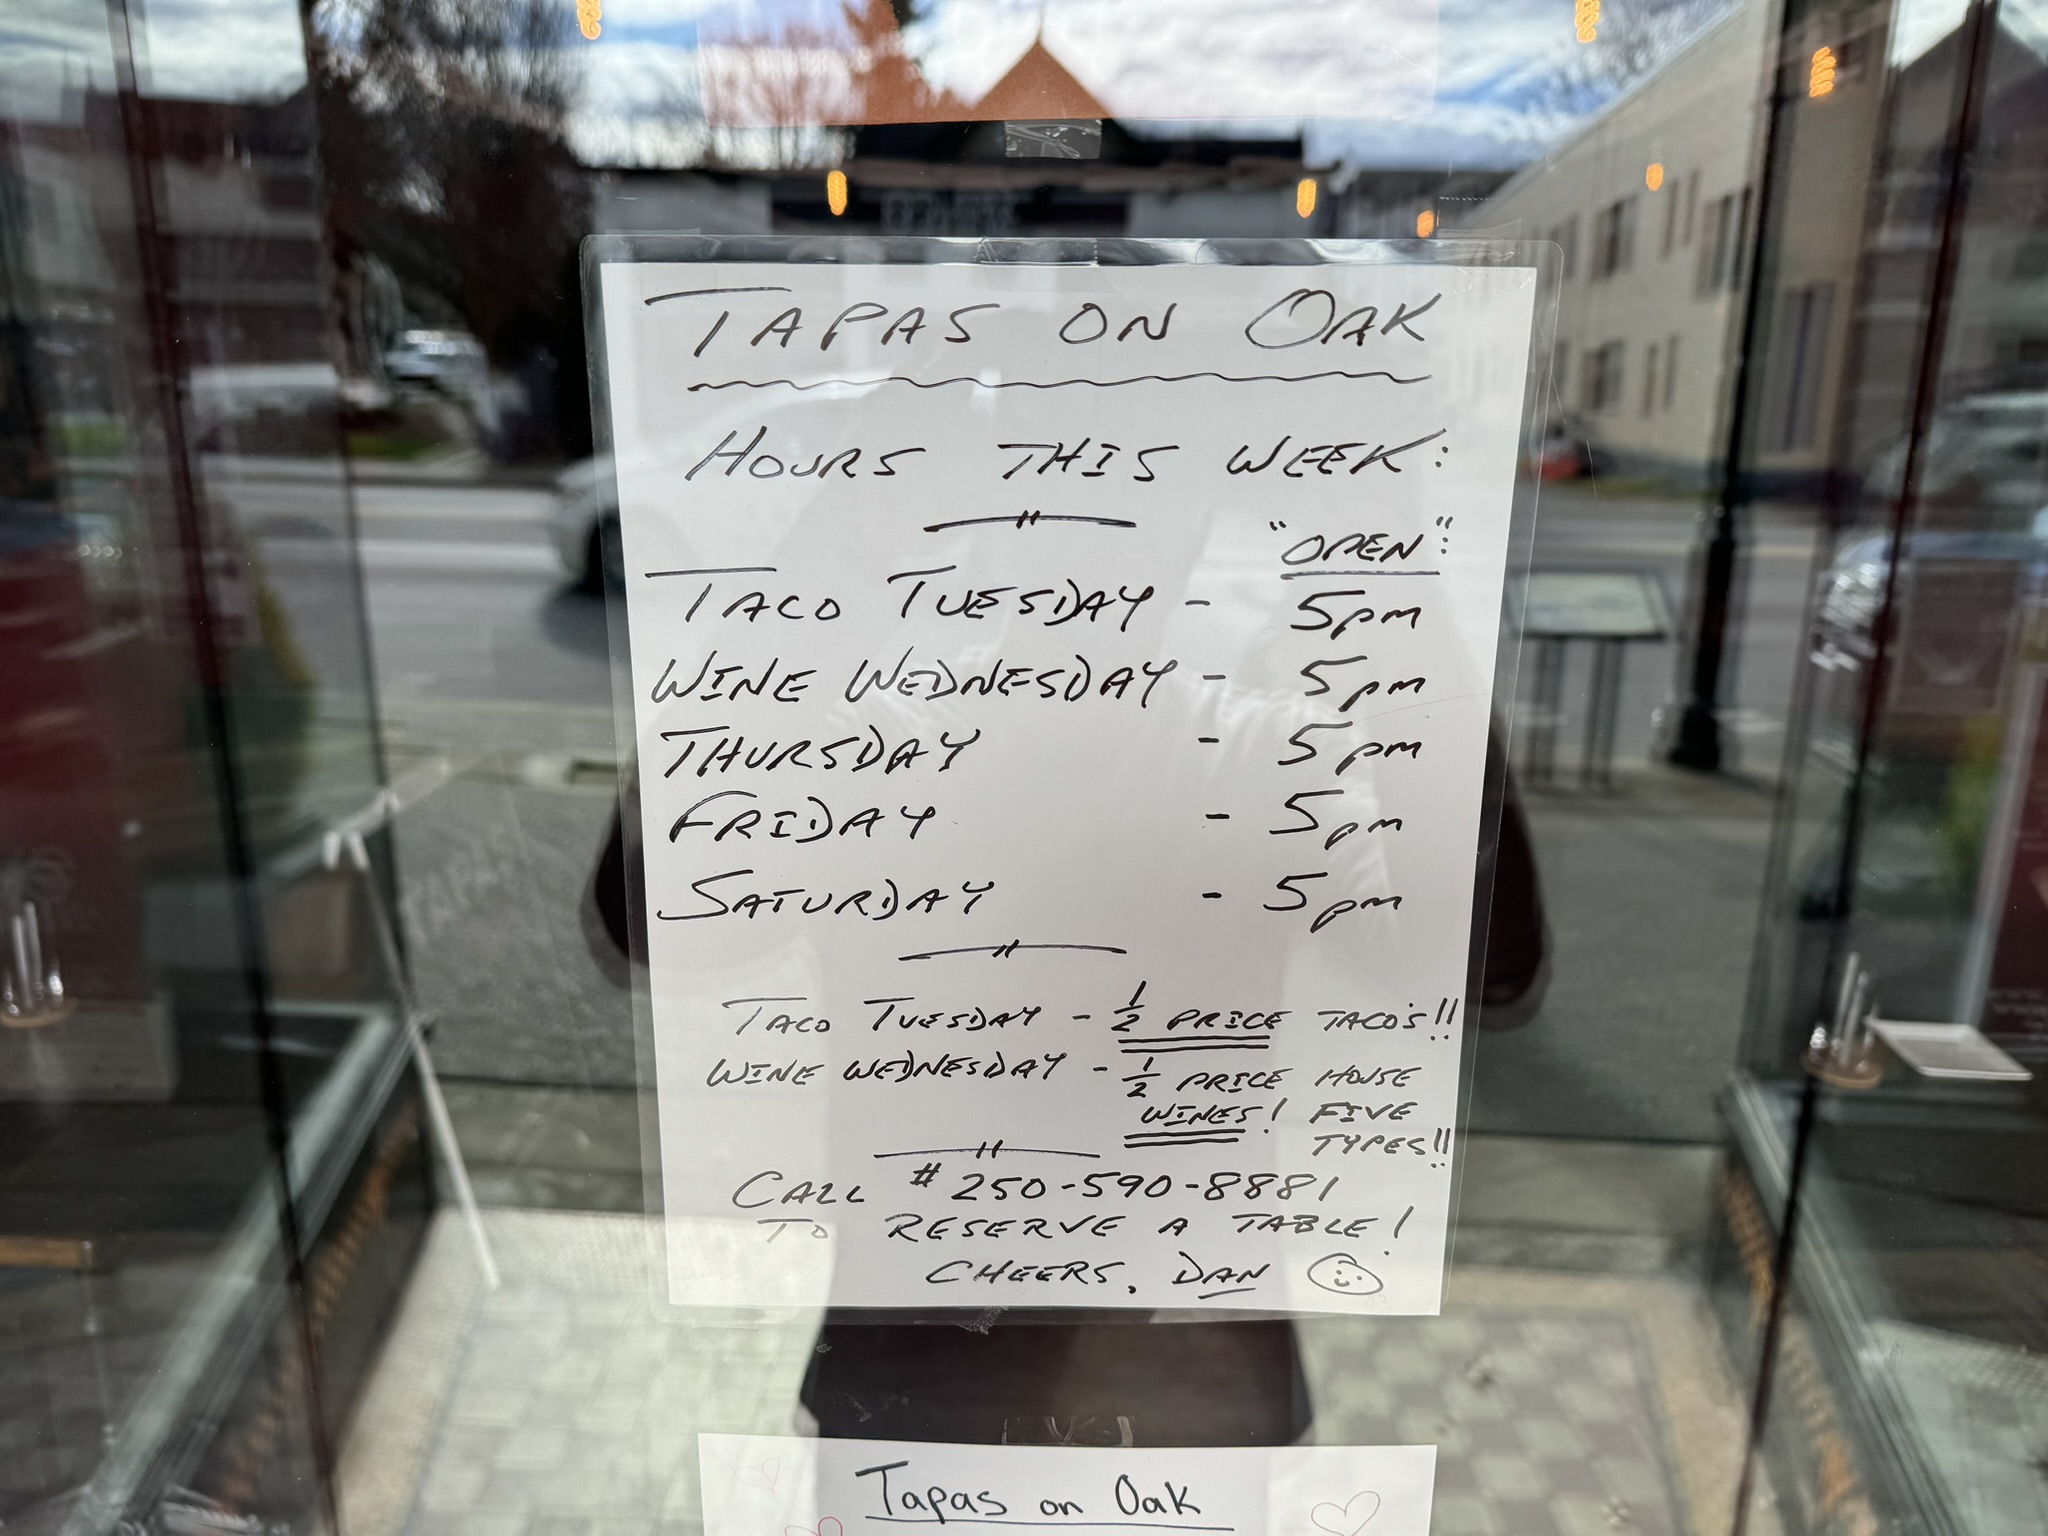 TAPAS ON OAK
HOURS THIS WEEK:
"OPEN":
TACO TUESDAY - 5pm
WINE WEDNESDAY - 5pm
THURSDAY - 5pm
FRIDAY - 5pm
SATURDAY - 5pm
TACO TUESDAY - 1/2 PRICE TACO'S!!
WINE WEDNESDAY - 1/2 PRICE HOUSE
WINES! FIVE
TYPES!!
CALL # 250-590-8881
TO RESERVE A TABLE!
CHEERS, DAN
Tapas on Oak